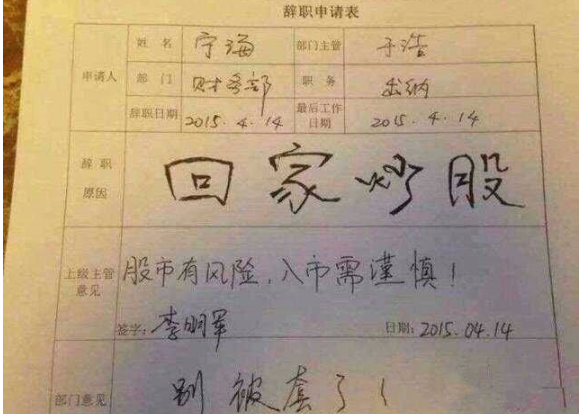 辞职申请表
申请人 姓 名 宁海 部门主管 于浩
部 门 财务部 职 务 出纳
辞职日期 2015.4.14 最后工作日期 2015.4.14
辞 职 原因 回家炒股
上级主管意见 股市有风险,入市需谨慎!
签字: 李明军 日期: 2015.04.14
部门意见 别被套了!